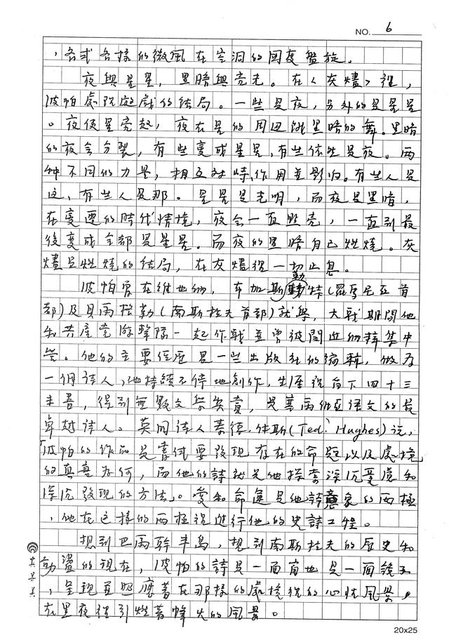 NO. 6
，各式各樣的微風在空洞的國度盤旋。
夜與星星，黑暗與亮光。在〈灰燼〉裡，
波帕處理遊戲的結局。一些是夜，另外的是星星
。夜使星亮起，夜在星的周圍跳黑暗的舞。黑暗
的夜會分裂，有些變成星星，有些仍然是夜。兩
種不同的力量，相互
有些人是
這，有些人是那。星星是光明，而夜是黑暗，
在變遷的時代情境，夜會一直點亮，一直到最
後變成全部是星星。而夜的黑暗自己燃燒。灰
燼是燃燒的結局，在灰燼裡一動止息。
波帕曾在維也納，布加勒斯特（羅馬尼亞首
都）及貝爾格勒（南斯拉夫首都）就學，大戰期間他
和共產黨游擊隊一起作戰並曾被關進納粹集中
營。他的主要任務是一些出版社的編輯，做為
一個詩人，他持續不停地創作，生涯留下四十三
本書，得到無數文學獎賞，是
語文的最
卓越詩人。英國詩人泰德·休斯（Ted Hughes）說，
「波帕的作品是意圖要發現存在的命題以及處境
的真意為何，而他的詩就是他探索深沉憂慮和
深沉發現的方法。」愛和命運是他詩意象的兩極
，他在這樣的兩極裡進行他的史詩工程。
想到巴爾幹半島，想到南斯拉夫的歷史和
動盪的現在，波帕的詩是一面窗也是一面鏡子
，呈現並照應著在那樣的處境裡的心性風景，
在黑夜裡引燃著烽火的風景。
20x25